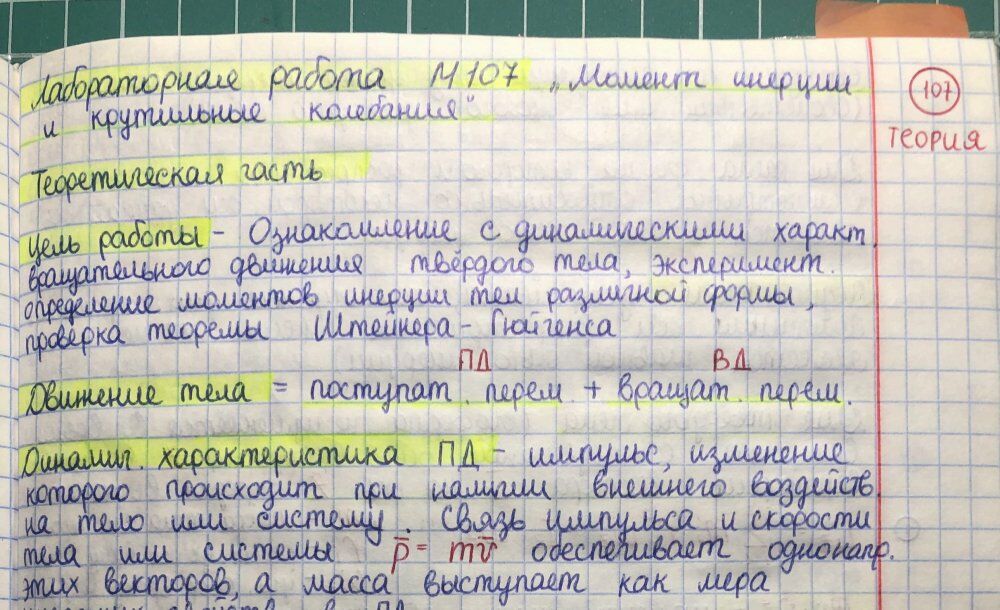 Лабораторная работа М107 „Момент инерции
и крутильные колебания"
107
теория
Теоретическая часть
Цель работы - Ознакомление с динамическими характ.
вращательного движения твёрдого тела, эксперимент.
определение моментов инерции тел различной формы,
проверка теоремы Штейнера - Гюйгенса
ПД ВД
Движение тела = поступат. перем + вращат. перем.
Динамич. характеристика ПД - импульс, изменение
которого происходит при наличии внешнего воздейств.
на тело или систему. Связь импульса и скорости
тела или системы p̅ = mv̅ обеспечивает однонапр.
этих векторов, а масса выступает как мера